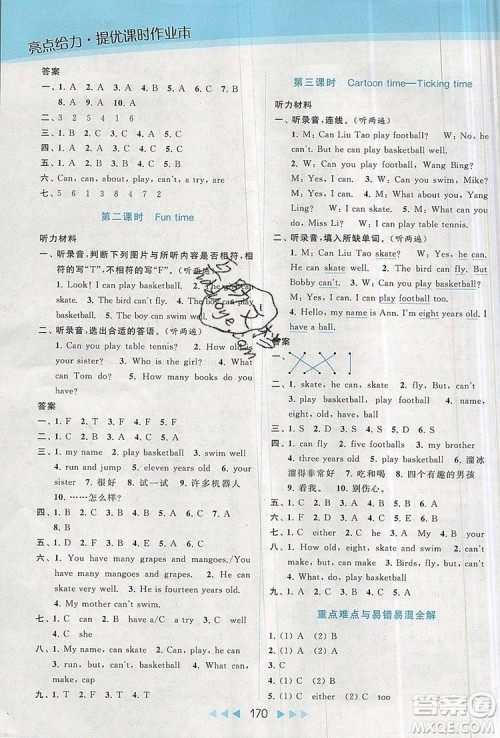 亮点给力·提优课时作业本
答案
一、1. A 2. A 3. A 4. B 5. A 6. A
7. A 8. A 9. A 10. A
二、3 2 5 4 1 6
三、1. B 2. C 3. C 4. B 5. C
四、1. B 2. A 3. B 4. A
五、1. A 2. A 3. B 4. A 5. B 6. B
六、can, are, can, play, can't, a try, are
七、5 6 1 3 8 4 7 2
第二课时 Fun time
听力材料
一、听录音,判断下列图片与所听内容是否相符,相
符的写"T",不相符的写"F"。(听两遍)
1. Look! I can play basketball. 2. The
can skate. 3. The bird can't fly. 4.
skate. 5. The boy can swim well.
二、听录音,选出合适的答语。(听两遍)
1. Can you play table tennis? 2. How old is
your sister? 3. Who is the girl? 4. What
can Tom do? 5. How many books do you
have?
答案
一、1. F 2. T 3. F 4. F 5. T
二、1. C 2. B 3. C 4. C 5. A
三、1. my mother 2. play basketball 3. swim well
4. run and jump 5. eleven mangoes 6. how old
7. very good 8. 试一试 9. 许多机器人
10. ……怎么样?
四、1. B 2. C 3. A 4. A 5. B 6. C
五、1. D 2. A 3. B 4. E 5. C
六、1. You have many grapes and mangoes./You
have many mangoes and grapes. 2. Can you
play table tennis? 3. He is fourteen years old.
4. My mother can't swim.
七、1. C can 2. B her 3. A an 4. B are
5. C she
八、can, can't, play basketball, swim, and, read,
sing, run, but, can't, play basketball, swim
九、1. F 2. T 3. T 4. T 5. F
第三课时 Cartoon time—Ticking time
听力材料
一、听录音,连线。(听两遍)
1. M: Can Liu Tao play football? W: No, he
can't. But he can play basketball well.
2. W: Can you play football, Wang Bing?
M: Yes, I can. 3. W: Can you swim, Mike?
M: Yes, I can. 4. W: Can you skate, David?
M: Yes, I can.
二、听录音,填入所缺单词。(听两遍)
1. He can skate. 2. A bird can fly. But
Bobby can't. 3. Can you play football?
4. Hello, my name is Ann. I'm eight years old.
I have big eyes. I can play table tennis.
答案
二、1. skate, he can, skate 2. bird can fly, can't
3. Can, play football 4. name, eight, big, can
play
三、1. can fly 2. five footballs 3. seven robots
4. play basketball 5. very cool 6. 溜冰
溜得非常好 7. 吃和喝 8. 那个有趣的男孩
9. 看我。 10. 从……休息。
四、1. C 2. A 3. B 4. B 5. C 6. A
五、1. C either 2. B skate 3. A play
4. C Wow 5. B do
六、1. Who, eight, either 2. like, ball, have, ball
3. jump, how, about 4. old, try, ball
七、1. C 2. D 3. A 4. E 5. B
八、1. F 2. T 3. F 4. F 5. T
重点难点与易错易混全解
1. (1) A (2) B
2. (1) C (2) C
3. (1) B (2) B
4. (1) A (2) B
5. (1) either (2) too
170